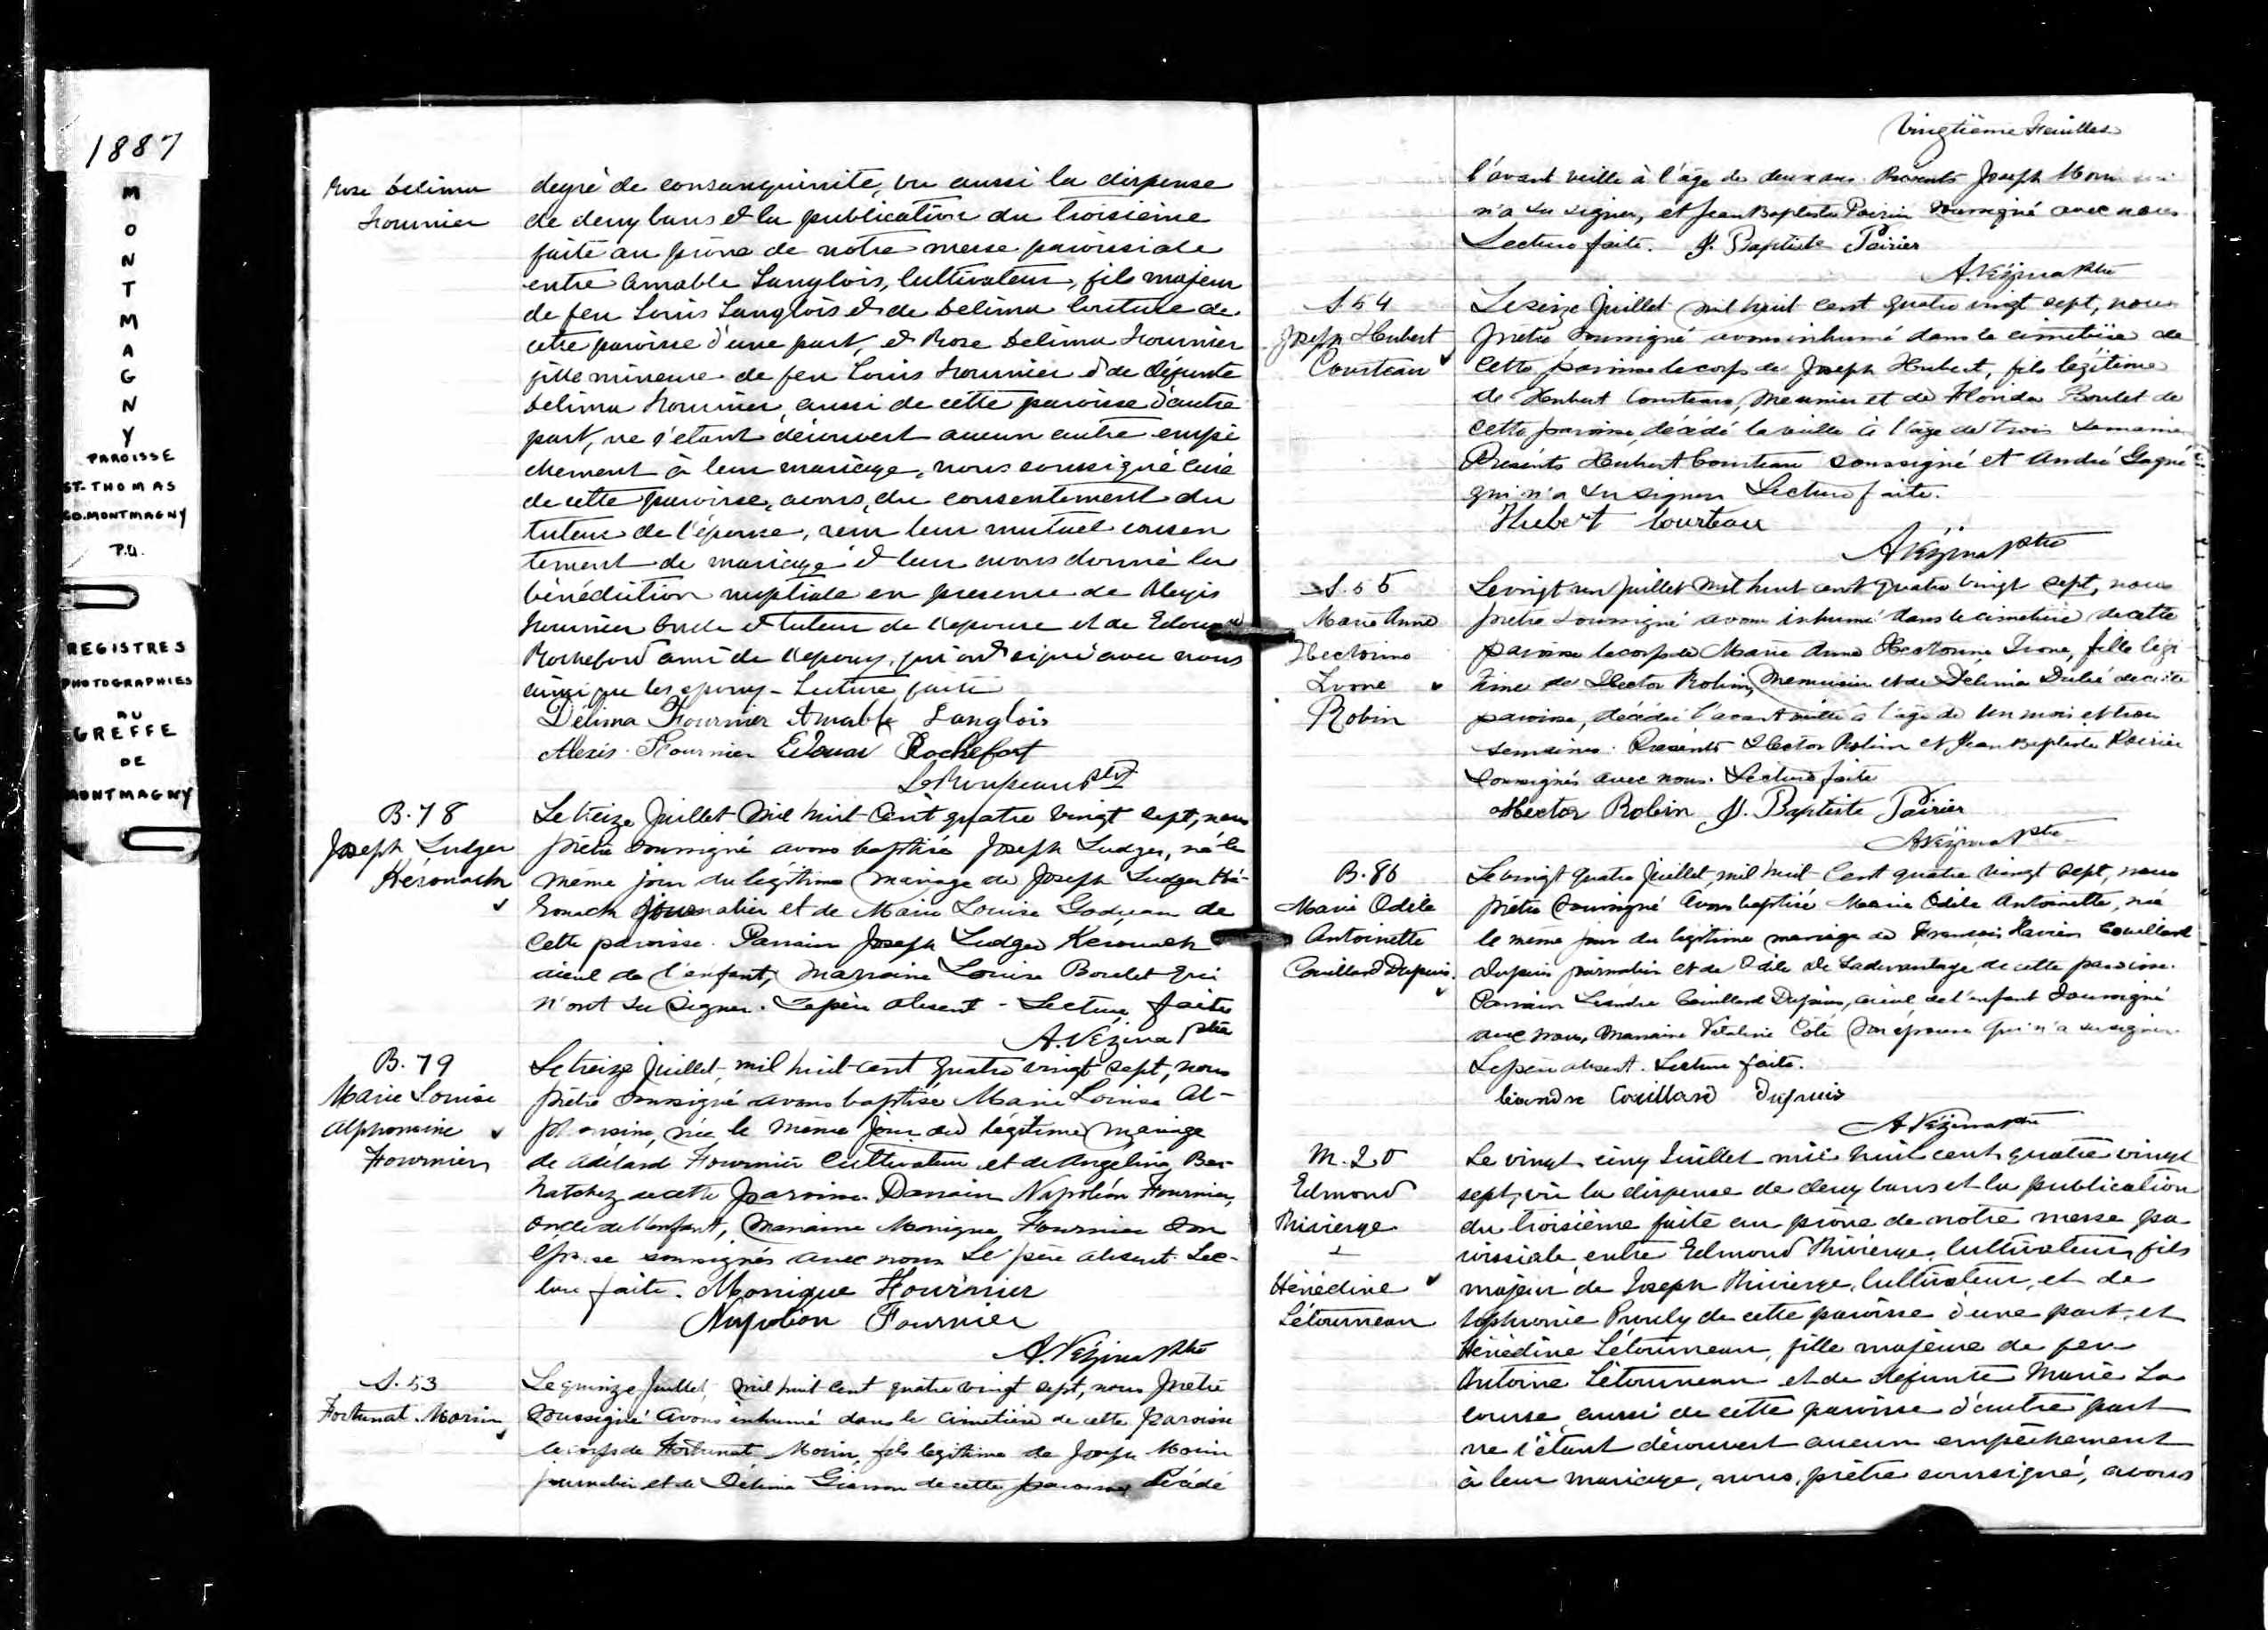 1887
MONTMAGNY
PAROISSE
ST-THOMAS
CO.MONTMAGNY
P.Q.
REGISTRES
PHOTOGRAPHIES
AU
GREFFE
DE
MONTMAGNY
Rose Délima
Fournier
degré de consanguinité, vu aussi la dispense
de deux bans et la publication du troisième
faite au prône de notre messe paroissiale
entre Amable Langlois, Cultivateur, fils majeur
de feu Louis Langlois et de Délima Couture de
cette paroisse d'une part, et Rose Délima Fournier
fille mineure de feu Louis Fournier et de défunte
Délima Fournier, aussi de cette paroisse d'autre
part, ne s'étant découvert aucun autre empê
chement à leur mariage, nous soussigné curé
de cette paroisse, avons, du consentement du
tuteur de l'épouse, reçu leur mutuel consen
tement de mariage et leur avons donné la
bénédiction nuptiale en présence de Alexis
Fournier Oncle et tuteur de l'épouse et de Edouard
Rochefort ami de l'époux, qui ont signé avec nous
ainsi que les époux - Lecture faite
Délima Fournier Amable Langlois
Alexis Fournier Edouar Rochefort
B. 78
Joseph Ludger
Kérouack
Le treize Juillet mil huit Cent quatre vingt sept, nous
prêtre soussigné avons baptisé Joseph Ludger, né le
même jour du légitime mariage de Joseph Ludger Ké-
rouack journalier et de Marie Louise Godreau de
Cette paroisse. Parrain Joseph Ludger Kerouack
aieul de l'enfant, Marraine Louise Boulet qui
n'ont su signer. Le père absent - Lecture faite
A. Vézina Ptre
B. 79
Marie Louise
Alphonsine
Fournier
Le treize Juillet, mil huit cent quatre vingt sept, nous
prêtre soussigné avons baptisé Marie Louise Al-
phonsine, née le même jour du légitime mariage
de Adélard Fournier Cultivateur et de Angelina Ber-
natchez de cette paroisse. Parrain Napoléon Fournier,
oncle de l'enfant, Marraine Monique Fournier son
épouse soussignés avec nous Le père absent. Lec-
ture faite. Monique Fournier
Napoléon Fournier
A. Vézina Ptre
S. 53
Fortunat Morin
Le quinze Juillet, mil huit cent quatre vingt sept, nous prêtre
soussigné avons inhumé dans le cimetière de cette paroisse
le corps de Fortunat Morin, fils légitime de Joseph Morin
journalier et de Délima Giasson de cette paroisse décédé
Vingtième Feuillet
l'avant veille à l'âge de deux ans. Présents Joseph Morin qui
n'a su signer, et Jean Baptiste Poirier soussigné avec nous.
Lecture faite. J. Baptiste Poirier
A. Vézina Ptre
S. 54
Joseph Hubert
Courteau
Le seize Juillet mil huit cent quatre vingt sept, nous
prêtre soussigné avons inhumé dans le cimetière de
cette paroisse le corps de Joseph Hubert, fils légitime
de Hubert Courteau, Meunier et de Florida Boulet de
cette paroisse, décédé la veille à l'âge de trois semaines
Présents Hubert Courteau soussigné et André Gagné
qui n'a su signer Lecture faite.
Hubert Courteau
A Vézina Ptre
S. 55
Marie Anne
Hectorine
Ivone
Robin
Le vingt un Juillet mil huit cent quatre vingt sept, nous
prêtre soussigné avons inhumé dans le cimetière de cette
paroisse le corps de Marie Anne Hectorine Ivone, fille légi
time de Hector Robin, Menuisier et de Délima Dubé de cette
paroisse, décédée l'avant veille à l'âge de un mois et trois
semaines. Présents Hector Robin et Jean Baptiste Poirier
soussignés avec nous. Lecture faite
Hector Robin J. Baptiste Poirier
A Vézina Ptre
B. 80
Marie Odile
Antoinette
Couillard Dupuis
Le vingt quatre Juillet, mil huit Cent quatre vingt sept, nous
prêtre soussigné avons baptisé Marie Odile Antoinette, née
le même jour du légitime mariage de François Xavier Couillard
Dupuis journalier et de Odile De Ladurantaye de cette paroisse.
Parrain Léandre Couillard Dupuis, aieul de l'enfant soussigné
avec nous, Marraine Vitaline Côté son épouse qui n'a su signer
Le père absent. Lecture faite.
Léandre Couillard Dupuis
A Vézina Ptre
M. 20
Edmond
Thivierge
&
Hénédine
Létourneau
Le vingt cinq Juillet mil huit cent quatre vingt
sept, vu la dispense de deux bans et la publication
du troisième faite au prône de notre messe pa
roissiale, entre Edmond Thivierge, Cultivateur, fils
majeur de Joseph Thivierge, Cultivateur, et de
Sophronie Proulx de cette paroisse d'une part, et
Hénédine Létourneau, fille majeure de feu
Antoine Létourneau et de défunte Marie La
course aussi de cette paroisse d'autre part
ne s'étant découvert aucun empêchement
à leur mariage, nous, prêtre soussigné, avons